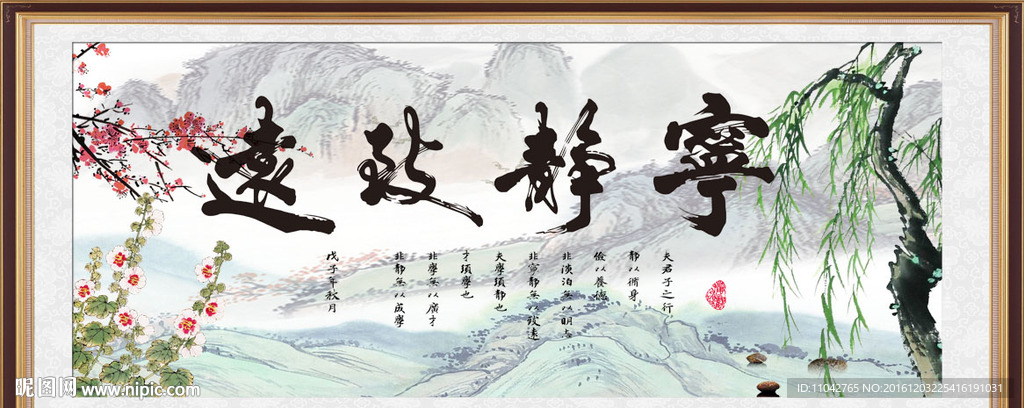 寧靜致遠
夫君子之行
靜以脩身
儉以養德
非淡泊無以明志
非寧靜無以致遠
夫學須靜也
才須學也
非學無以廣才
非靜無以成學
戊子年秋月
昵图网 www.nipic.com
ID:11042765 NO:20161203225416191031